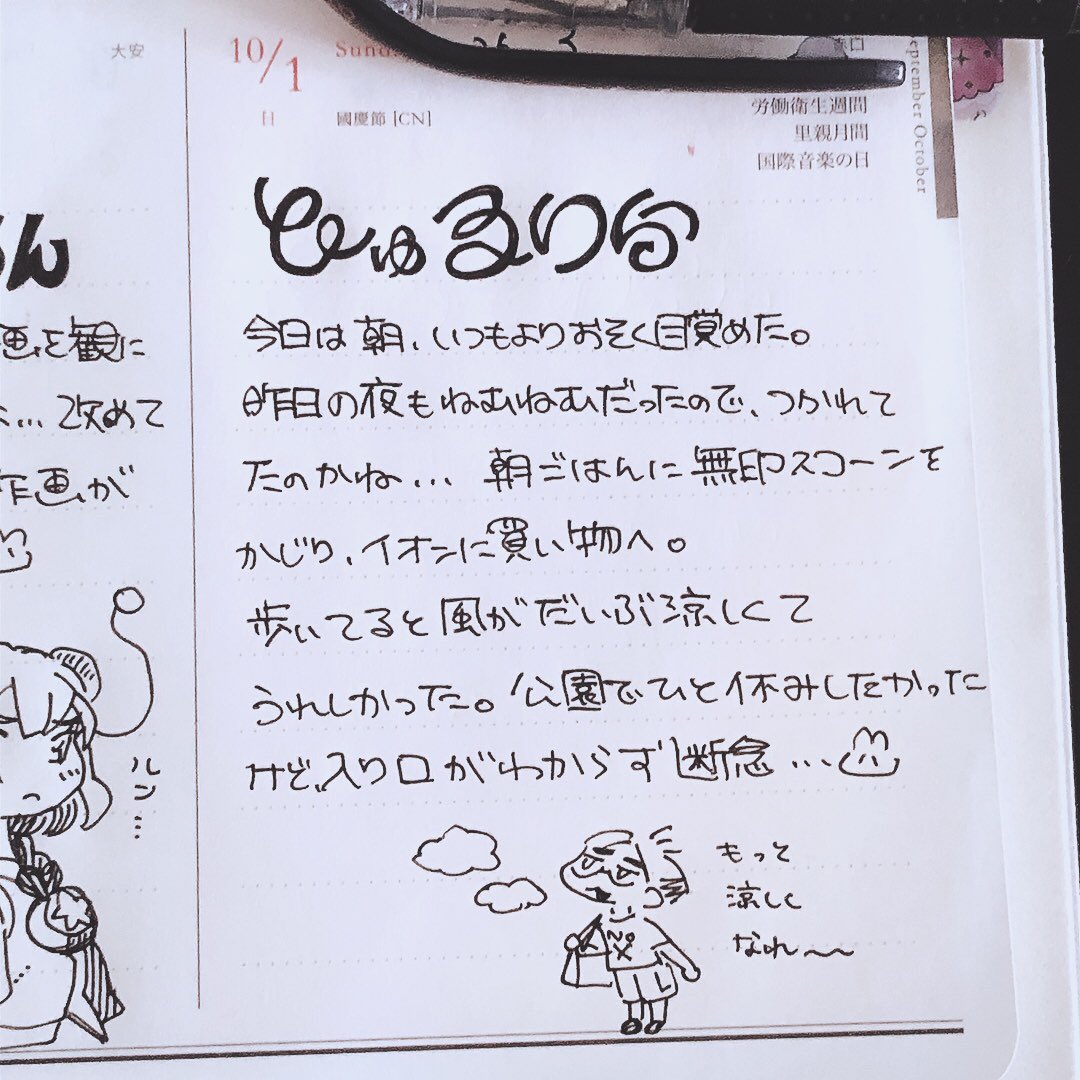 大安
10/1
日
國慶節 [CN]
労働衛生週間
里親月間
国際音楽の日
September October
今日は朝、いつもよりおそく目覚めた。
昨日の夜もねむねむだったので、つかれて
たのかね… 朝ごはんに無印スコーンを
かじり、イオンに買い物へ。
歩いてると風がだいぶ涼しくて
うれしかった。公園でひと休みしたかった
けど、入り口がわからず断念…
もっと
涼しく
なれ〜〜
画を観に
…改めて
作画が
ルン…